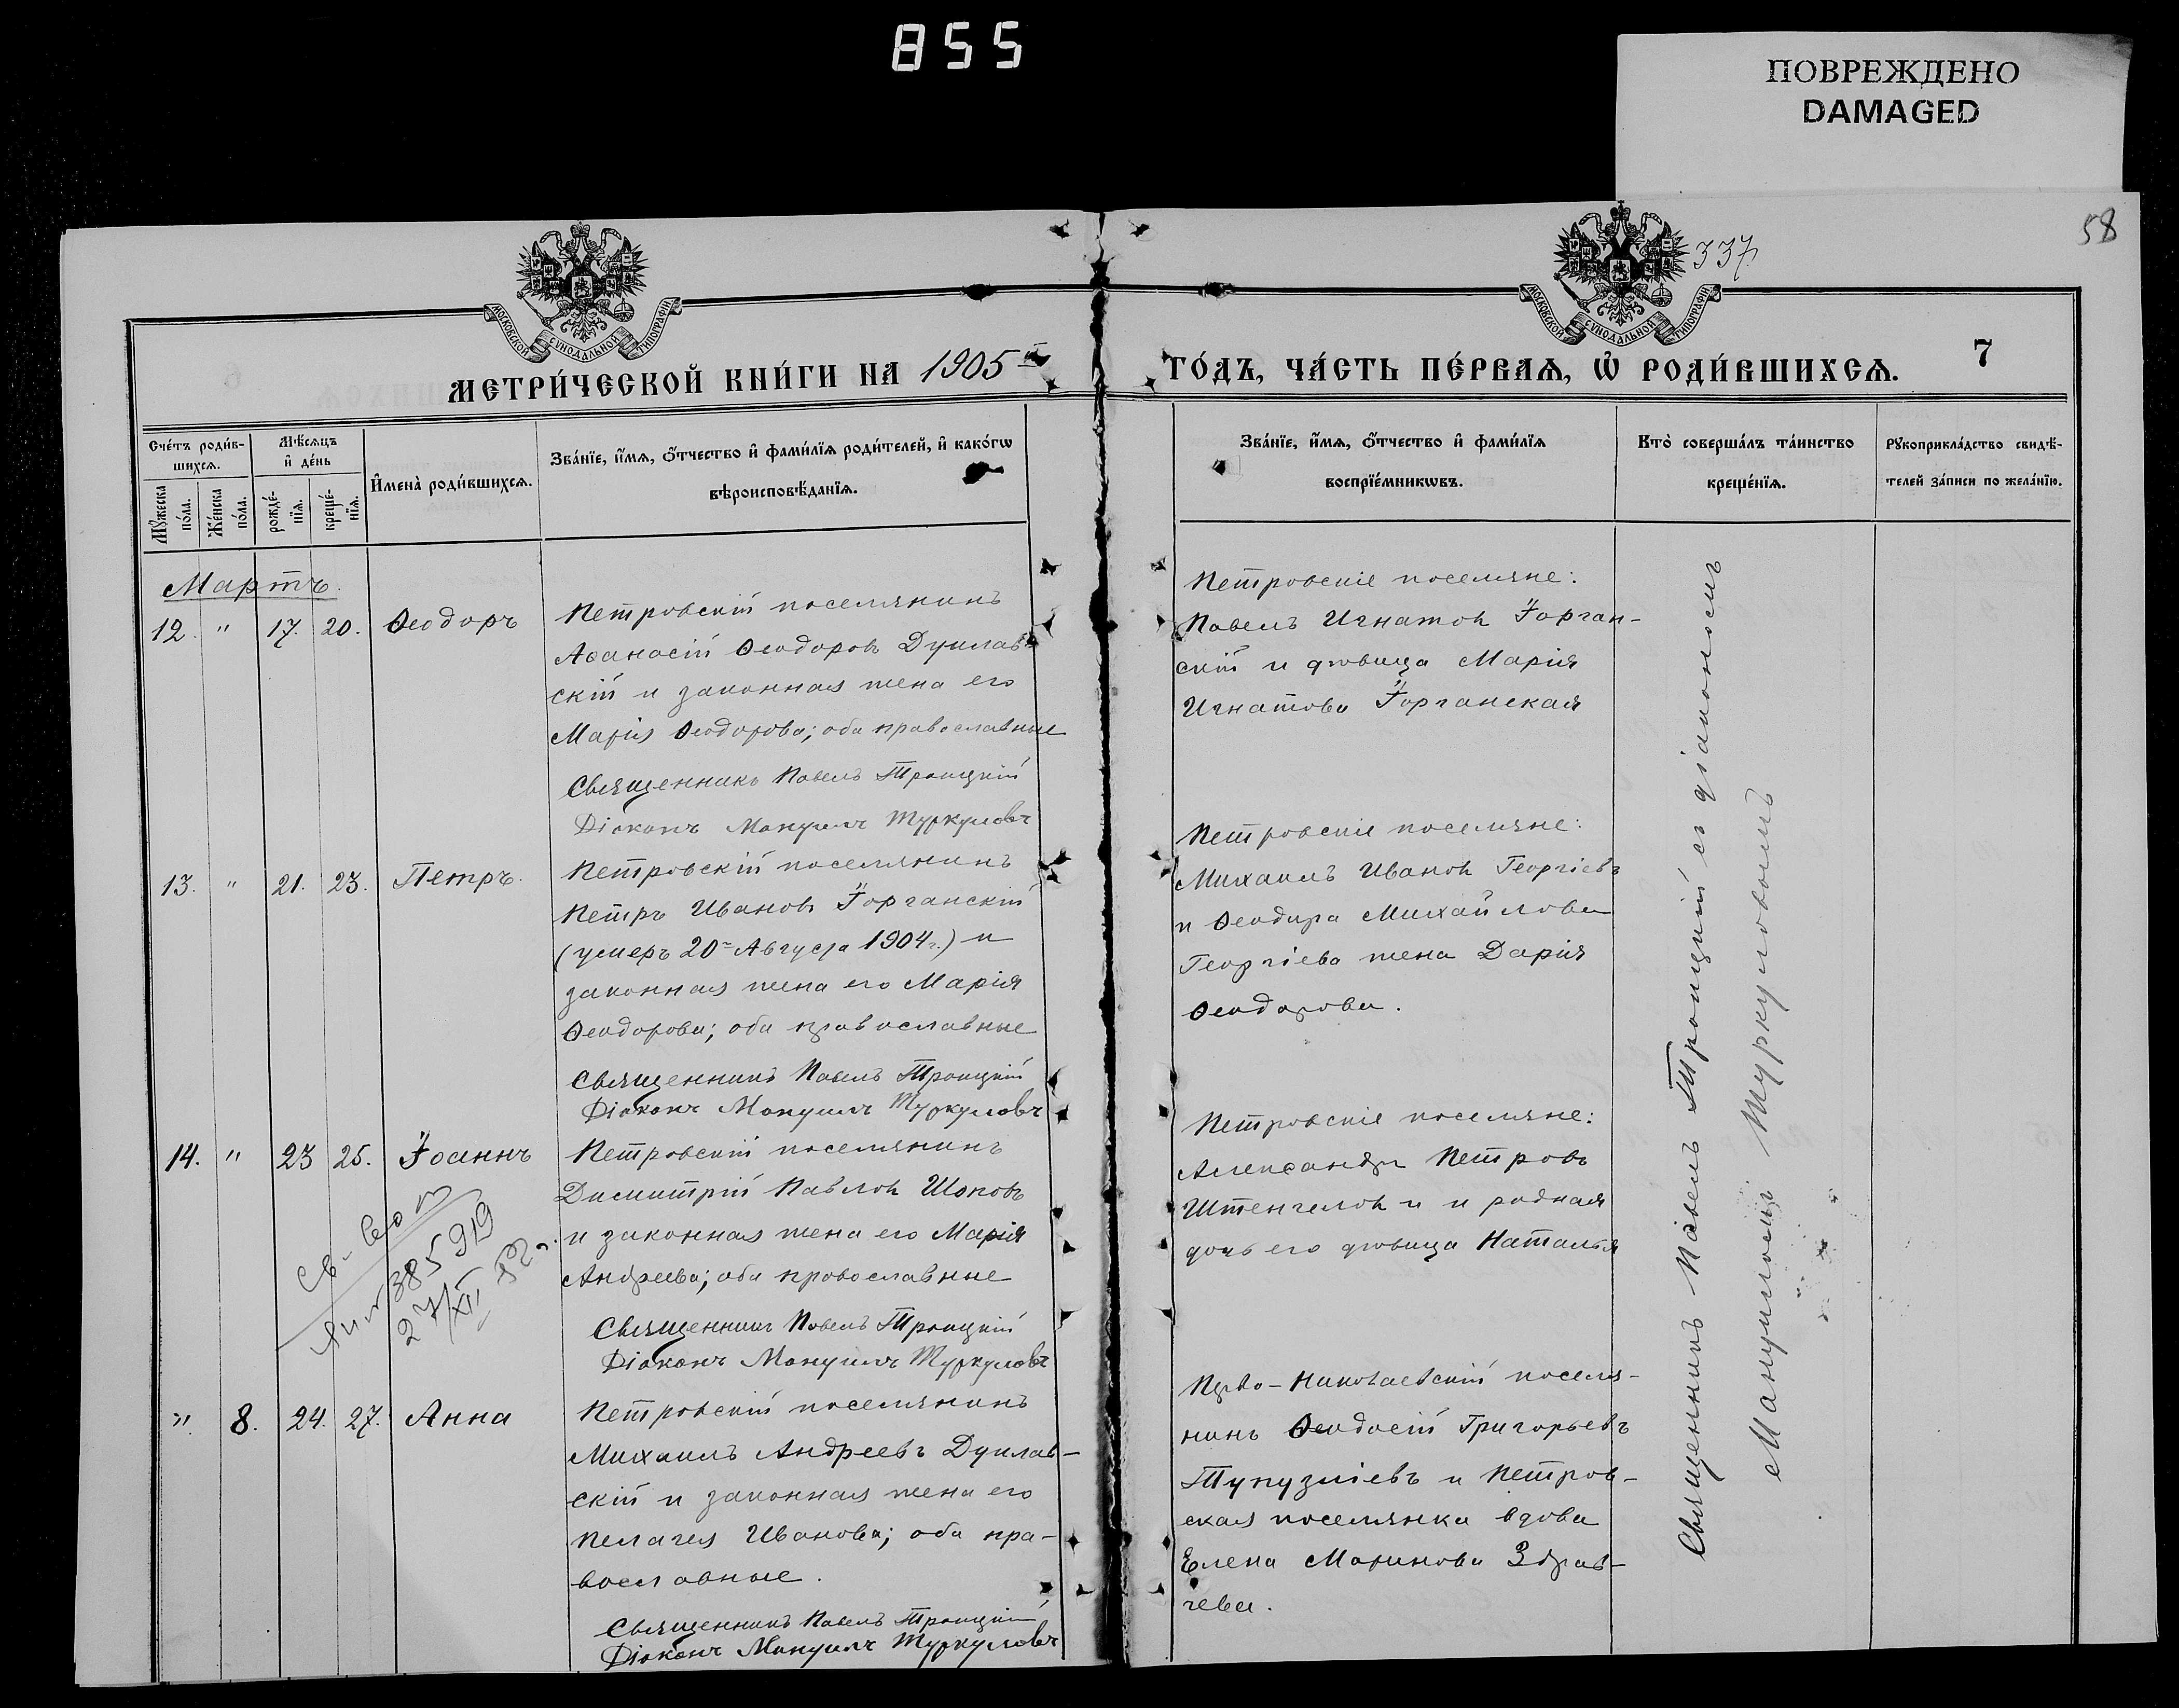 855
ПОВРЕЖДЕНО
DAMAGED
58
337
МОСКОВСКОЙ СѴНОДАЛЬНОЙ ТИПОГРАФІИ
МОСКОВСКОЙ СѴНОДАЛЬНОЙ ТИПОГРАФІИ
МЕТРИ́ЧЕСКОЙ КНИ́ГИ НА 1905 й
ГО́ДЪ, ЧА́СТЬ ПЕ́РВАѦ, Ѡ҆ РОДИ́ВШИХСѦ.
7
Сче́тъ роди́в-
шихсѧ.
Мѣ́сѧцъ
и҆ де́нь
Мꙋ́жеска по́ла.
Же́нска по́ла.
рожде́-нїѧ.
креще́-нїѧ.
И҆мена̀ роди́вшихсѧ.
Зва́нїе, и҆́мѧ, ѻ҆́тчество и҆ фами́лїѧ роди́телей, и҆ како́гѡ
вѣроисповѣ́данїѧ.
Зва́нїе, и҆́мѧ, ѻ҆́тчество и҆ фами́лїѧ
воспрїе́мникѡвъ.
Кто̀ соверша́лъ та́инство
креще́нїѧ.
Рꙋкоприкла́дство свидѣ́-
телей за́писи по жела́нїю.
Мартъ.
12. " 17. 20. Ѳеодоръ
Петровскій поселянинъ
Аѳанасій Ѳеодоровъ Дуклав-
скій и законная жена его
Марія Ѳеодорова; оба православные
Священникъ Павелъ Троицкій
Діаконъ Мануилъ Туркуловъ
Петровскіе поселяне:
Павелъ Игнатов Іорган-
скій и дѣвица Марія
Игнатова Іорганская
13. " 21. 23. Петръ.
Петровскій поселянинъ
Петръ Ивановъ Іорганскій
(умеръ 20 Августа 1904 г.) и
законная жена его Марія
Ѳеодорова; оба православные
Священникъ Павелъ Троицкій
Діаконъ Мануилъ Туркуловъ
Петровскіе поселяне:
Михаилъ Иванов Георгіевъ
и Ѳеодора Михайлова
Георгіева жена Дарія
Ѳеодорова.
14. " 23 25. Іоаннъ
Петровскій поселянинъ
Димитрій Павлов Шоповъ
и законная жена его Марія
Андреева; оба православные
Священникъ Павелъ Троицкій
Діаконъ Мануилъ Туркуловъ
385919
27/XII
Петровскіе поселяне:
Александръ Петровъ
Штенгелов и и родная
дочь его дѣвица Наталья
" 8. 24. 27. Анна
Петровскій поселянинъ
Михаилъ Андреевъ Дуклав-
скій и законная жена его
Пелагея Иванова; оба пра-
вославные.
Священникъ Павелъ Троицкій
Діаконъ Мануилъ Туркуловъ
Николаевскій поселя-
нинъ Ѳеодосій Григорьевъ
и Петров-
ская поселянка вдова
Елена Маринова Здрав-
чева.
Священникъ Павелъ Троицкій съ діакономъ
Мануиломъ Туркуловымъ